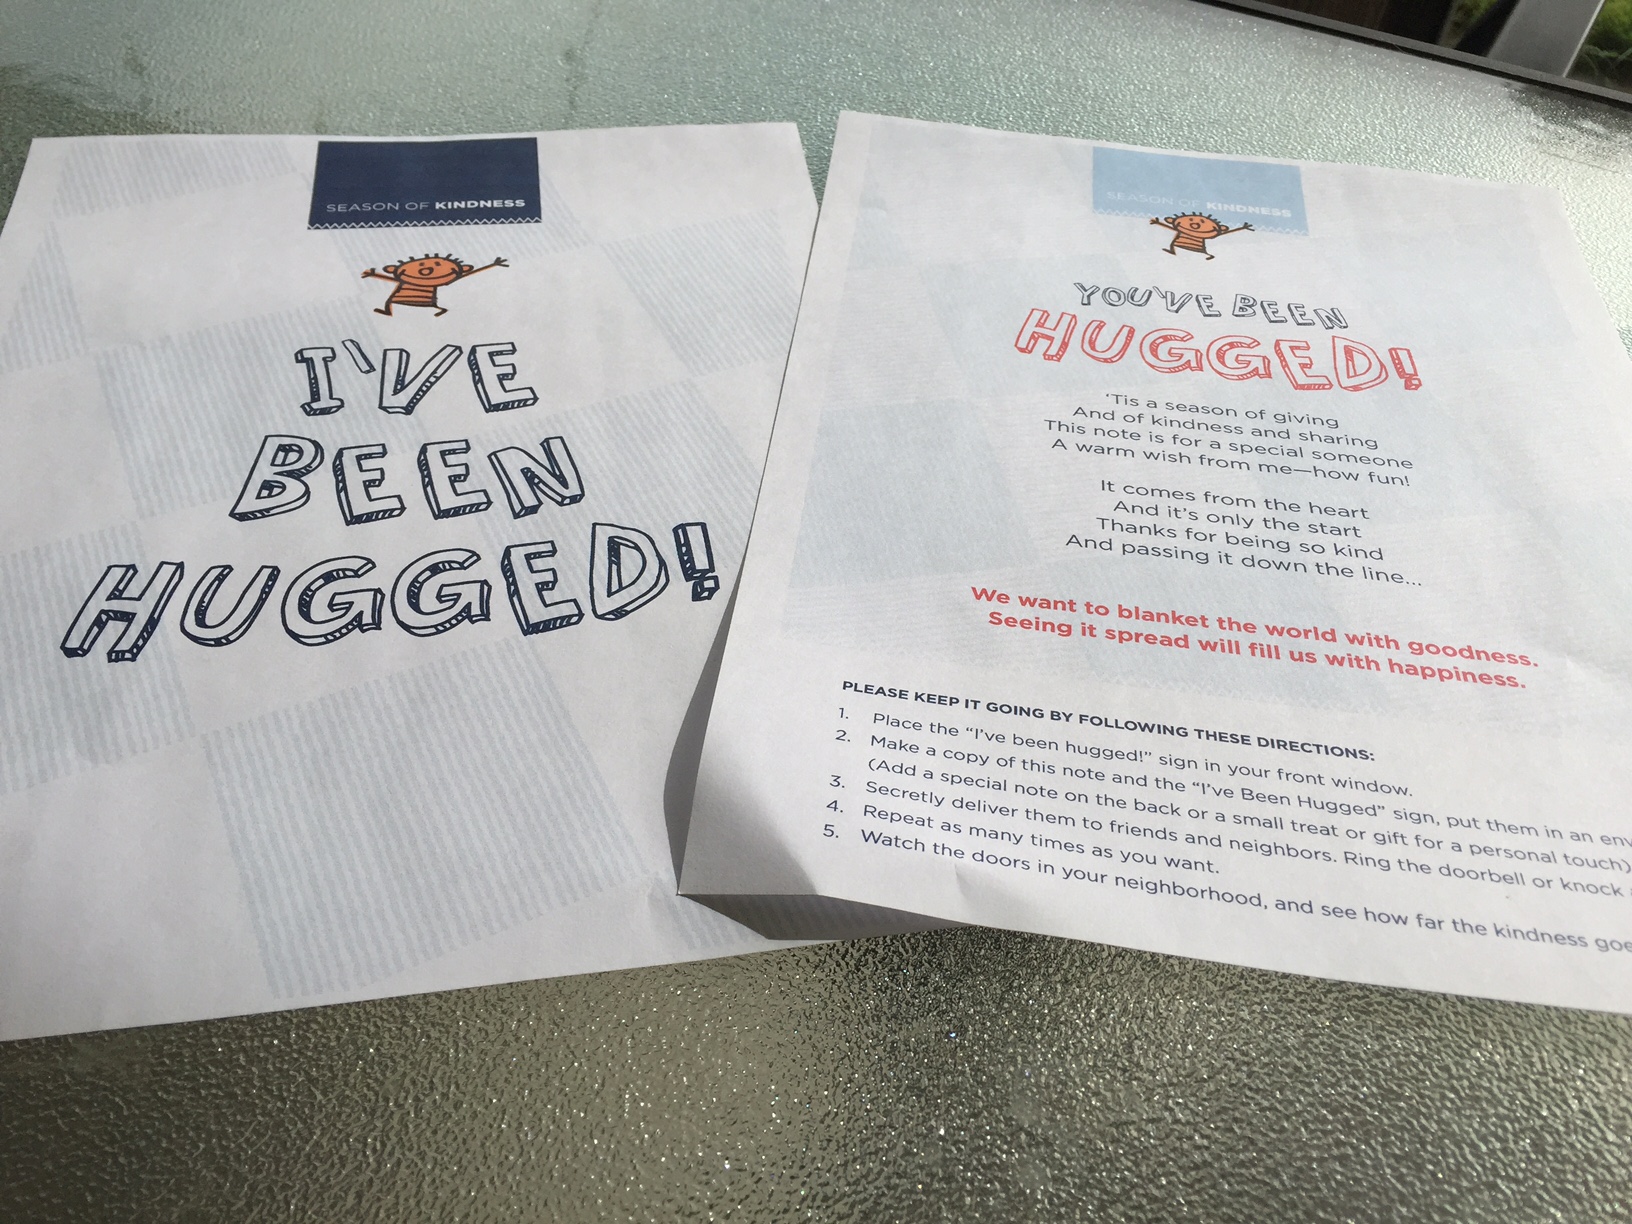 SEASON OF KINDNESS
I'VE
BEEN
HUGGED!
SEASON OF KINDNESS
YOU'VE BEEN
HUGGED!
'Tis a season of giving
And of kindness and sharing
This note is for a special someone
A warm wish from me—how fun!
It comes from the heart
And it's only the start
Thanks for being so kind
And passing it down the line...
We want to blanket the world with goodness.
Seeing it spread will fill us with happiness.
PLEASE KEEP IT GOING BY FOLLOWING THESE DIRECTIONS:
1. Place the "I've been hugged!" sign in your front window.
2. Make a copy of this note and the "I've Been Hugged" sign, put them in an
(Add a special note on the back or a small treat or gift for a personal touch)
3. Secretly deliver them to friends and neighbors. Ring the doorbell or knock
4. Repeat as many times as you want.
5. Watch the doors in your neighborhood, and see how far the kindness